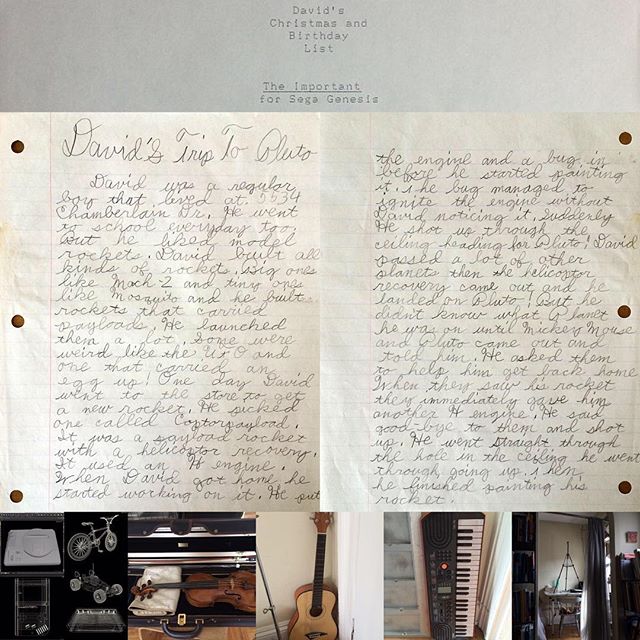 David's
Christmas and
Birthday
List
The Important
for Sega Genesis
David's Trip To Pluto
David was a regular
boy that lived at 5534
Chamberlain Dr. He went
to school everyday too.
But he liked model
rockets. David built all
kinds of rockets. Big ones
like Mach-2 and tiny ones
like Mosquito and he built
rockets that carried
payloads. He launched
them a lot. Some were
weird like the UFO and
one that carried an
egg up! One day David
went to the store to get
a new rocket. He picked
one called Coptorpayload.
It was a payload rocket
with a helicoptor recovery.
It used an H engine.
When David got home he
started working on it. He put
the engine and a bug in
before he started painting
it. The bug managed to
ignite the engine without
David noticing it. Suddenly
He shot up through the
ceiling heading for Pluto! David
passed a lot of other
planets then the helicoptor
recovery came out and he
landed on Pluto! But he
didn't know what Planet
he was on until Mickey Mouse
and Pluto came out and
told him. He asked them
to help him get back home.
When they saw his rocket
they immediately gave him
another H engine. He said
good-bye to them and shot
up. He went straight through
the hole in the ceiling he went
through going up. Then
he finished painting his
rocket.